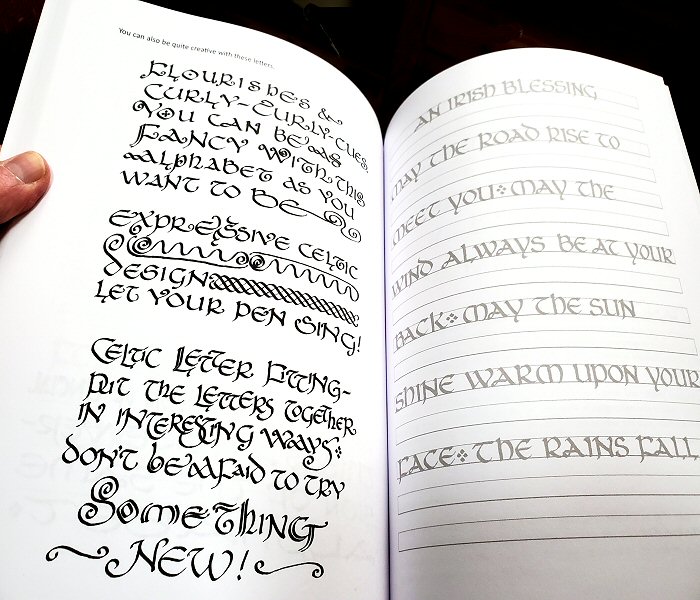 You can also be quite creative with these letters.
FLOURISHES &
CURLY-CURLY-CUES
YOU CAN BE AS
FANCY WITH THIS
ALPHABET AS YOU
WANT TO BE
EXPRESSIVE CELTIC
DESIGN
LET YOUR PEN SING!
CELTIC LETTER FITTING-
PUT THE LETTERS TOGETHER
IN INTERESTING WAYS
DON'T BE AFRAID TO TRY
SOMETHING
NEW!
AN IRISH BLESSING
MAY THE ROAD RISE TO
MEET YOU MAY THE
WIND ALWAYS BE AT YOUR
BACK MAY THE SUN
SHINE WARM UPON YOUR
FACE THE RAINS FALL